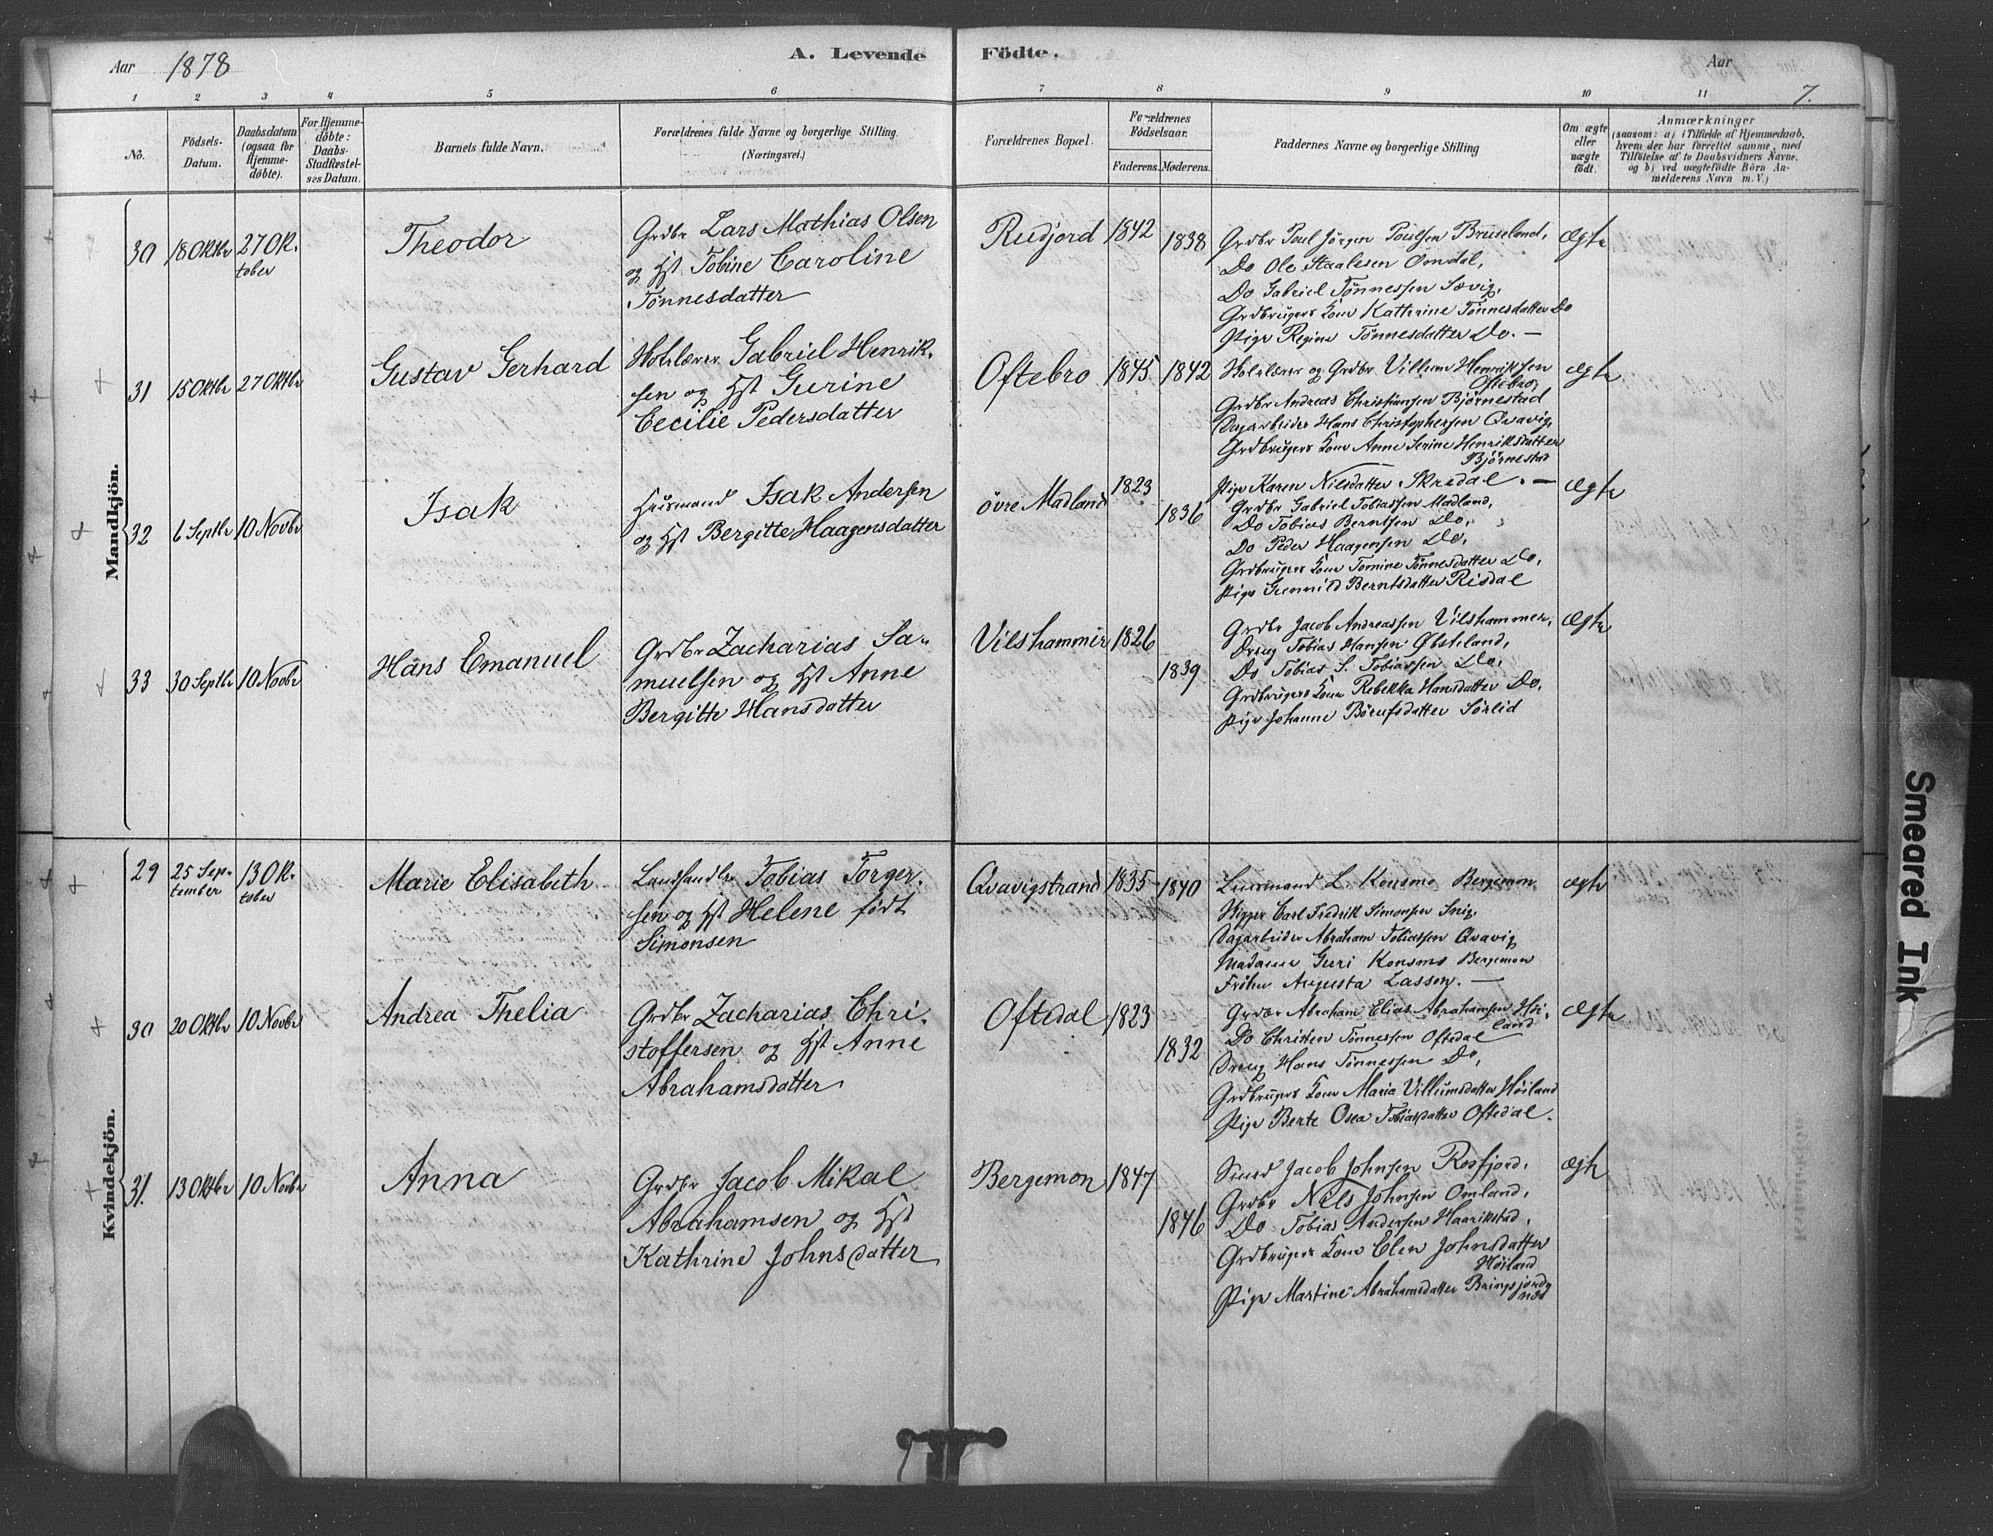 Aar 1878 A. Levende Födte. Aar
7.
1 2 3 4 5 6 7 8 9 10 11
No.
Födsels-
Datum.
Daabsdatum
(ogsaa for
Hjemme-
döbte).
For Hjemme-
döbte:
Daabs-
Stadfæstel-
ses Datum.
Barnets fulde Navn.
Forældrenes fulde Navne og borgerlige Stilling
(Næringsvei.)
Forældrenes Bopæl.
Forældrenes
Födselsaar.
Faderens. Moderens.
Faddernes Navne og borgerlige Stilling
Om ægte
eller
uægte
födt.
Anmærkninger
(saasom: a) i Tilfælde af Hjemmedaab,
hvem der har forrettet samme, med
Tilföielse af to Daabsvidners Navne,
og b) ved uægtefödte Börn An-
melderens Navn m. V.)
Mandkjön.
30 18 Oktbr 27 Ok-
tober
Theodor
Grdbr Lars Mathias Olsen
og Hst Tobine Caroline
Tönnesdatter
Rudjord 1842 1838
Grdbr Poul Jörgen Poulsen Bruseland,
Do Ole Staalesen Omdal,
Do Gabriel Tönnessen Sævig,
Grdbrugers Kone Kathrine Tönnesdatter Do
Pige Regine Tönnesdatter Do. —
Ægte
31 15 Oktbr 27 Oktbr
Gustav Gerhard
Skolelærer Gabriel Henrik-
sen og Hst Gurine
Cecilie Pedersdatter
Oftebro 1845 1842
Skolelærer og Grdbr Villum Henriksen
Oftebro,
Grdbr Andreas Christiansen Bjørnestad
Dagarbeider Hans Christophersen Qvavig,
Grdbrugers Kone Anne Serine Henriksdatter
Bjørnestad
Ægte
32 6 Septbr 10 Novbr
Isak
Husmand Isak Andersen
og Hst Bergitte Haagensdatter
övre Madland 1823 1836
Pige Karen Nilsdatter Skredal. —
Grdbr Gabriel Tobiassen Madland,
Do Tobias Berntsen Do,
Do Peder Haagensen Do,
Grdbrugers Kone Tomine Tönnesdatter Do,
Pige Gunnild Berntsdatter Risdal
Ægte
33 30 Septbr 10 Novbr
Hans Emanuel
Grdbr Zacharias Sa-
muelsen og Hst Anne
Bergitte Hansdatter
Vilshammer 1826 1839
Grdbr Jacob Andreassen Vilshammer,
Dreng Tobias Hansen
Do Tobias S. Tobiassen Do,
Grdbrugers Kone Rebekka Hansdatter Do,
Pige Johanne Börufsdatter Sörlid
Ægte
Kvindekjön.
29 25 Sep-
tember
13 Ok-
tober
Marie Elisabeth
Landhandler Tobias Torger-
sen og Hst Helene født
Simonsen
Qvavigstrand 1835 1840
Lensmand L. Konsmo Bergemon
Skipper Carl Fredrik Simonsen Snig,
Dagarbeider Abraham Tobiassen Qvavig
Madame Guri Konsmo Bergemon
Fröken Augusta Lassen. —
ægte
30 20 Oktbr 10 Novbr
Andrea Thelia
Grdbr Zacharias Chri-
stoffersen og Hst Anne
Abrahamsdatter
Oftedal 1823 1832
Grdbr Abraham Elias Abrahamsen Höi-
land
Do Christen Tönnessen Oftedal
Dreng Hans Tönnessen Do,
Grdbrugers Kone Maria Villumsdatter Höiland
Pige Berte Osea Tobiasdatter Oftedal.
Ægte
31. 13 Oktbr 10 Novbr
Anna
Grdbr Jacob Mikal
Abrahamsen og Hst
Kathrine Johnsdatter
Bergemon 1847 1846
Smed Jacob Johnsen Rosfjord,
Grdbr Nils Johnsen Omland,
Do Tobias Andersen Haarikstad,
Grdbrugers Kone Elen Johnsdatter
Höiland
Pige Martine Abrahamsdatter Bringsjord
ægte
Smeared Ink